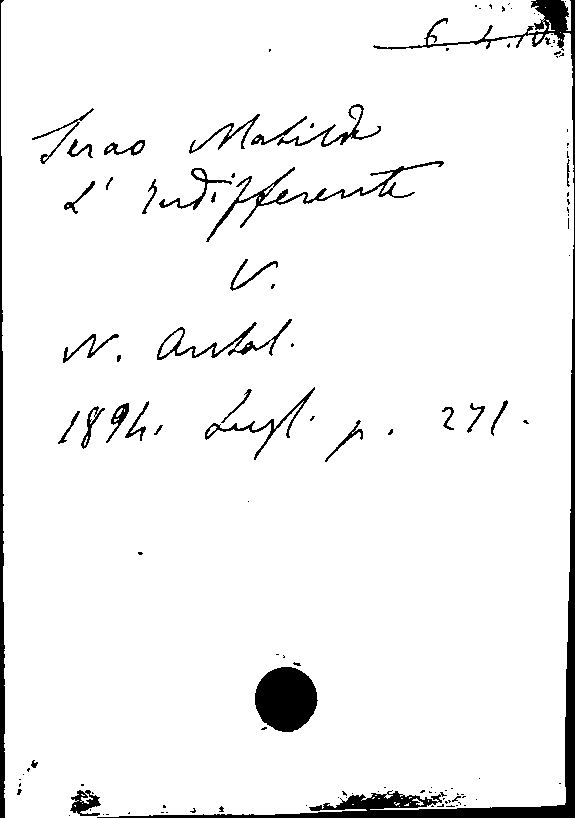 6. 4. IV.
Serao Matilde
L' Indifferente
V.
N. Antol.
1894. Lugl. p. 271.